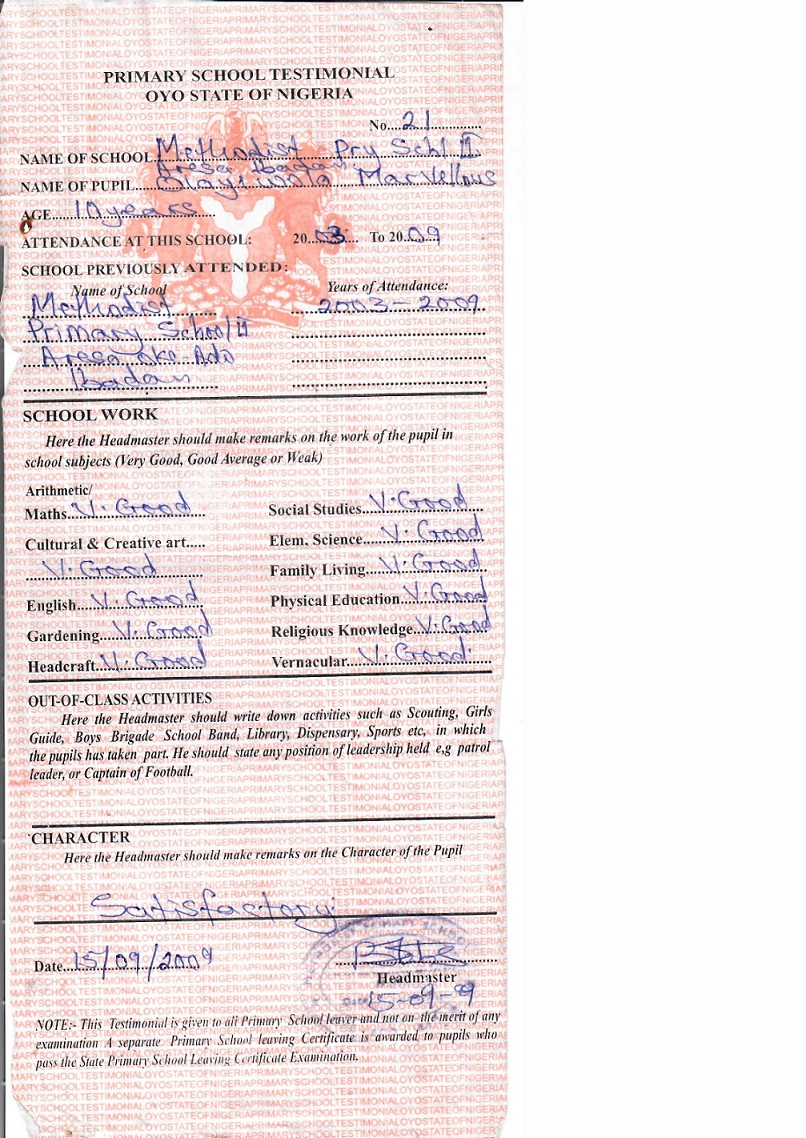 PRIMARY SCHOOL TESTIMONIAL
OYO STATE OF NIGERIA
No....21
NAME OF SCHOOL Methodist Pry Schl II
Aresa Ibadan
NAME OF PUPIL Olayiwola Marvellous
AGE 10 years
ATTENDANCE AT THIS SCHOOL: 20 03 To 20 09
SCHOOL PREVIOUSLY ATTENDED:
Name of School Years of Attendance:
Methodist 2003 - 2009
Primary School II
Aresa Oke Adu
Ibadan
SCHOOL WORK
Here the Headmaster should make remarks on the work of the pupil in
school subjects (Very Good, Good Average or Weak)
Arithmetic/
Maths V. Good Social Studies V. Good
Cultural & Creative art..... Elem, Science V. Good
V. Good Family Living V. Good
English V. Good Physical Education V. Good
Gardening V. Good Religious Knowledge V. Good
Headcraft V. Good Vernacular V. Good
OUT-OF-CLASS ACTIVITIES
Here the Headmaster should write down activities such as Scouting, Girls
Guide, Boys Brigade School Band, Library, Dispensary, Sports etc, in which
the pupils has taken part. He should state any position of leadership held e,g patrol
leader, or Captain of Football.
CHARACTER
Here the Headmaster should make remarks on the Character of the Pupil
Satisfactory
Date 15/09/2009
Headmaster
15-09-9
NOTE:- This Testimonial is given to all Primary School leaver and not on the merit of any
examination A separate Primary School leaving Certificate is awarded to pupils who
pass the State Primary School Leaving Certificate Examination.